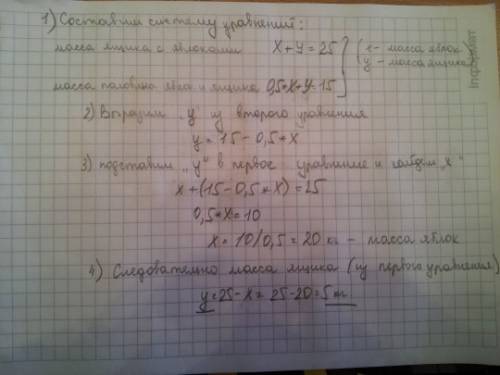 1) Составим систему уравнений:
масса ящика с яблоками x + y = 25 (x - масса яблок
y - масса ящика)
масса половины яблок и ящика 0,5*x+y=15
2) Выразим "y" из второго уравнения
y = 15 - 0,5*x
3) подставим "y" в первое уравнение и найдём "x"
x + (15 - 0,5*x) = 25
0,5*x = 10
x = 10/0,5 = 20 кг - масса яблок
4) Следовательно масса ящика (из первого уравнения)
y = 25 - x = 25 - 20 = 5 кг
информат